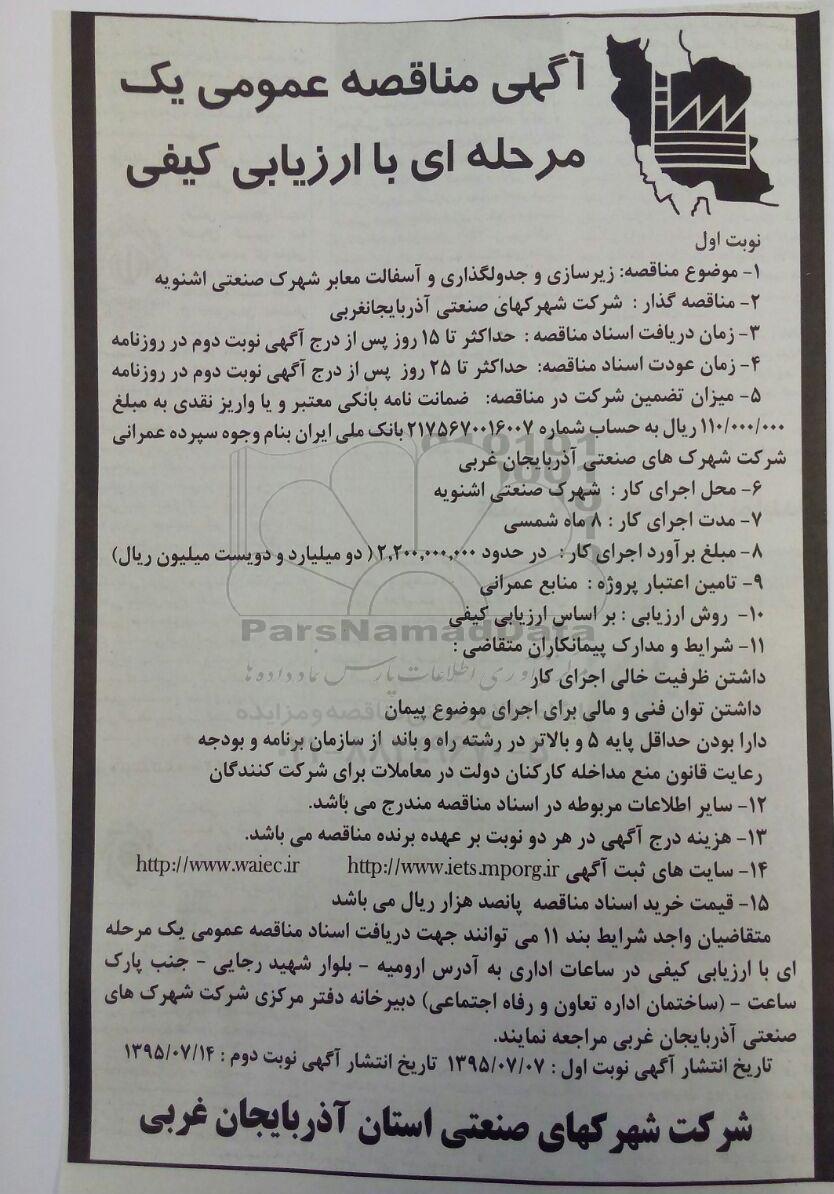 آگهی مناقصه عمومی یک
مرحله ای با ارزیابی کیفی
نوبت اول
۱- موضوع مناقصه: زیرسازی و جدولگذاری و آسفالت معابر شهرک صنعتی اشنویه
۲- مناقصه گذار : شرکت شهرکهای صنعتی آذربایجانغربی
۳- زمان دریافت اسناد مناقصه : حداکثر تا ۱۵ روز پس از درج آگهی نوبت دوم در روزنامه
۴- زمان عودت اسناد مناقصه: حداکثر تا ۲۵ روز پس از درج آگهی نوبت دوم در روزنامه
۵- میزان تضمین شرکت در مناقصه: ضمانت نامه بانکی معتبر و یا واریز نقدی به مبلغ
۱۱۰/۰۰۰/۰۰۰ ریال به حساب شماره ۲۱۷۵۶۷۰۰۱۶۰۰۷ بانک ملی ایران بنام وجوه سپرده عمرانی
شرکت شهرک های صنعتی آذربایجان غربی
۶- محل اجرای کار : شهرک صنعتی اشنویه
۷- مدت اجرای کار : ۸ ماه شمسی
۸- مبلغ برآورد اجرای کار : در حدود ۲,۲۰۰,۰۰۰,۰۰۰ ( دو میلیارد و دویست میلیون ریال)
۹- تامین اعتبار پروژه : منابع عمرانی
۱۰- روش ارزیابی : بر اساس ارزیابی کیفی
ParsNamadData
۱۱- شرایط و مدارک پیمانکاران متقاضی :
داشتن ظرفیت خالی اجرای کار
داشتن توان فنی و مالی برای اجرای موضوع پیمان
دارا بودن حداقل پایه ۵ و بالاتر در رشته راه و باند از سازمان برنامه و بودجه
رعایت قانون منع مداخله کارکنان دولت در معاملات برای شرکت کنندگان
۱۲- سایر اطلاعات مربوطه در اسناد مناقصه مندرج می باشد.
۱۳- هزینه درج آگهی در هر دو نوبت بر عهده برنده مناقصه می باشد.
۱۴- سایت های ثبت آگهی http://www.iets.mporg.ir http://www.waiec.ir
۱۵- قیمت خرید اسناد مناقصه پانصد هزار ریال می باشد
متقاضیان واجد شرایط بند ۱۱ می توانند جهت دریافت اسناد مناقصه عمومی یک مرحله
ای با ارزیابی کیفی در ساعات اداری به آدرس ارومیه - بلوار شهید رجایی - جنب پارک
ساعت - (ساختمان اداره تعاون و رفاه اجتماعی) دبیرخانه دفتر مرکزی شرکت شهرک های
صنعتی آذربایجان غربی مراجعه نمایند.
تاریخ انتشار آگهی نوبت اول : ۱۳۹۵/۰۷/۰۷ تاریخ انتشار آگهی نوبت دوم : ۱۳۹۵/۰۷/۱۴
شرکت شهرکهای صنعتی استان آذربایجان غربی